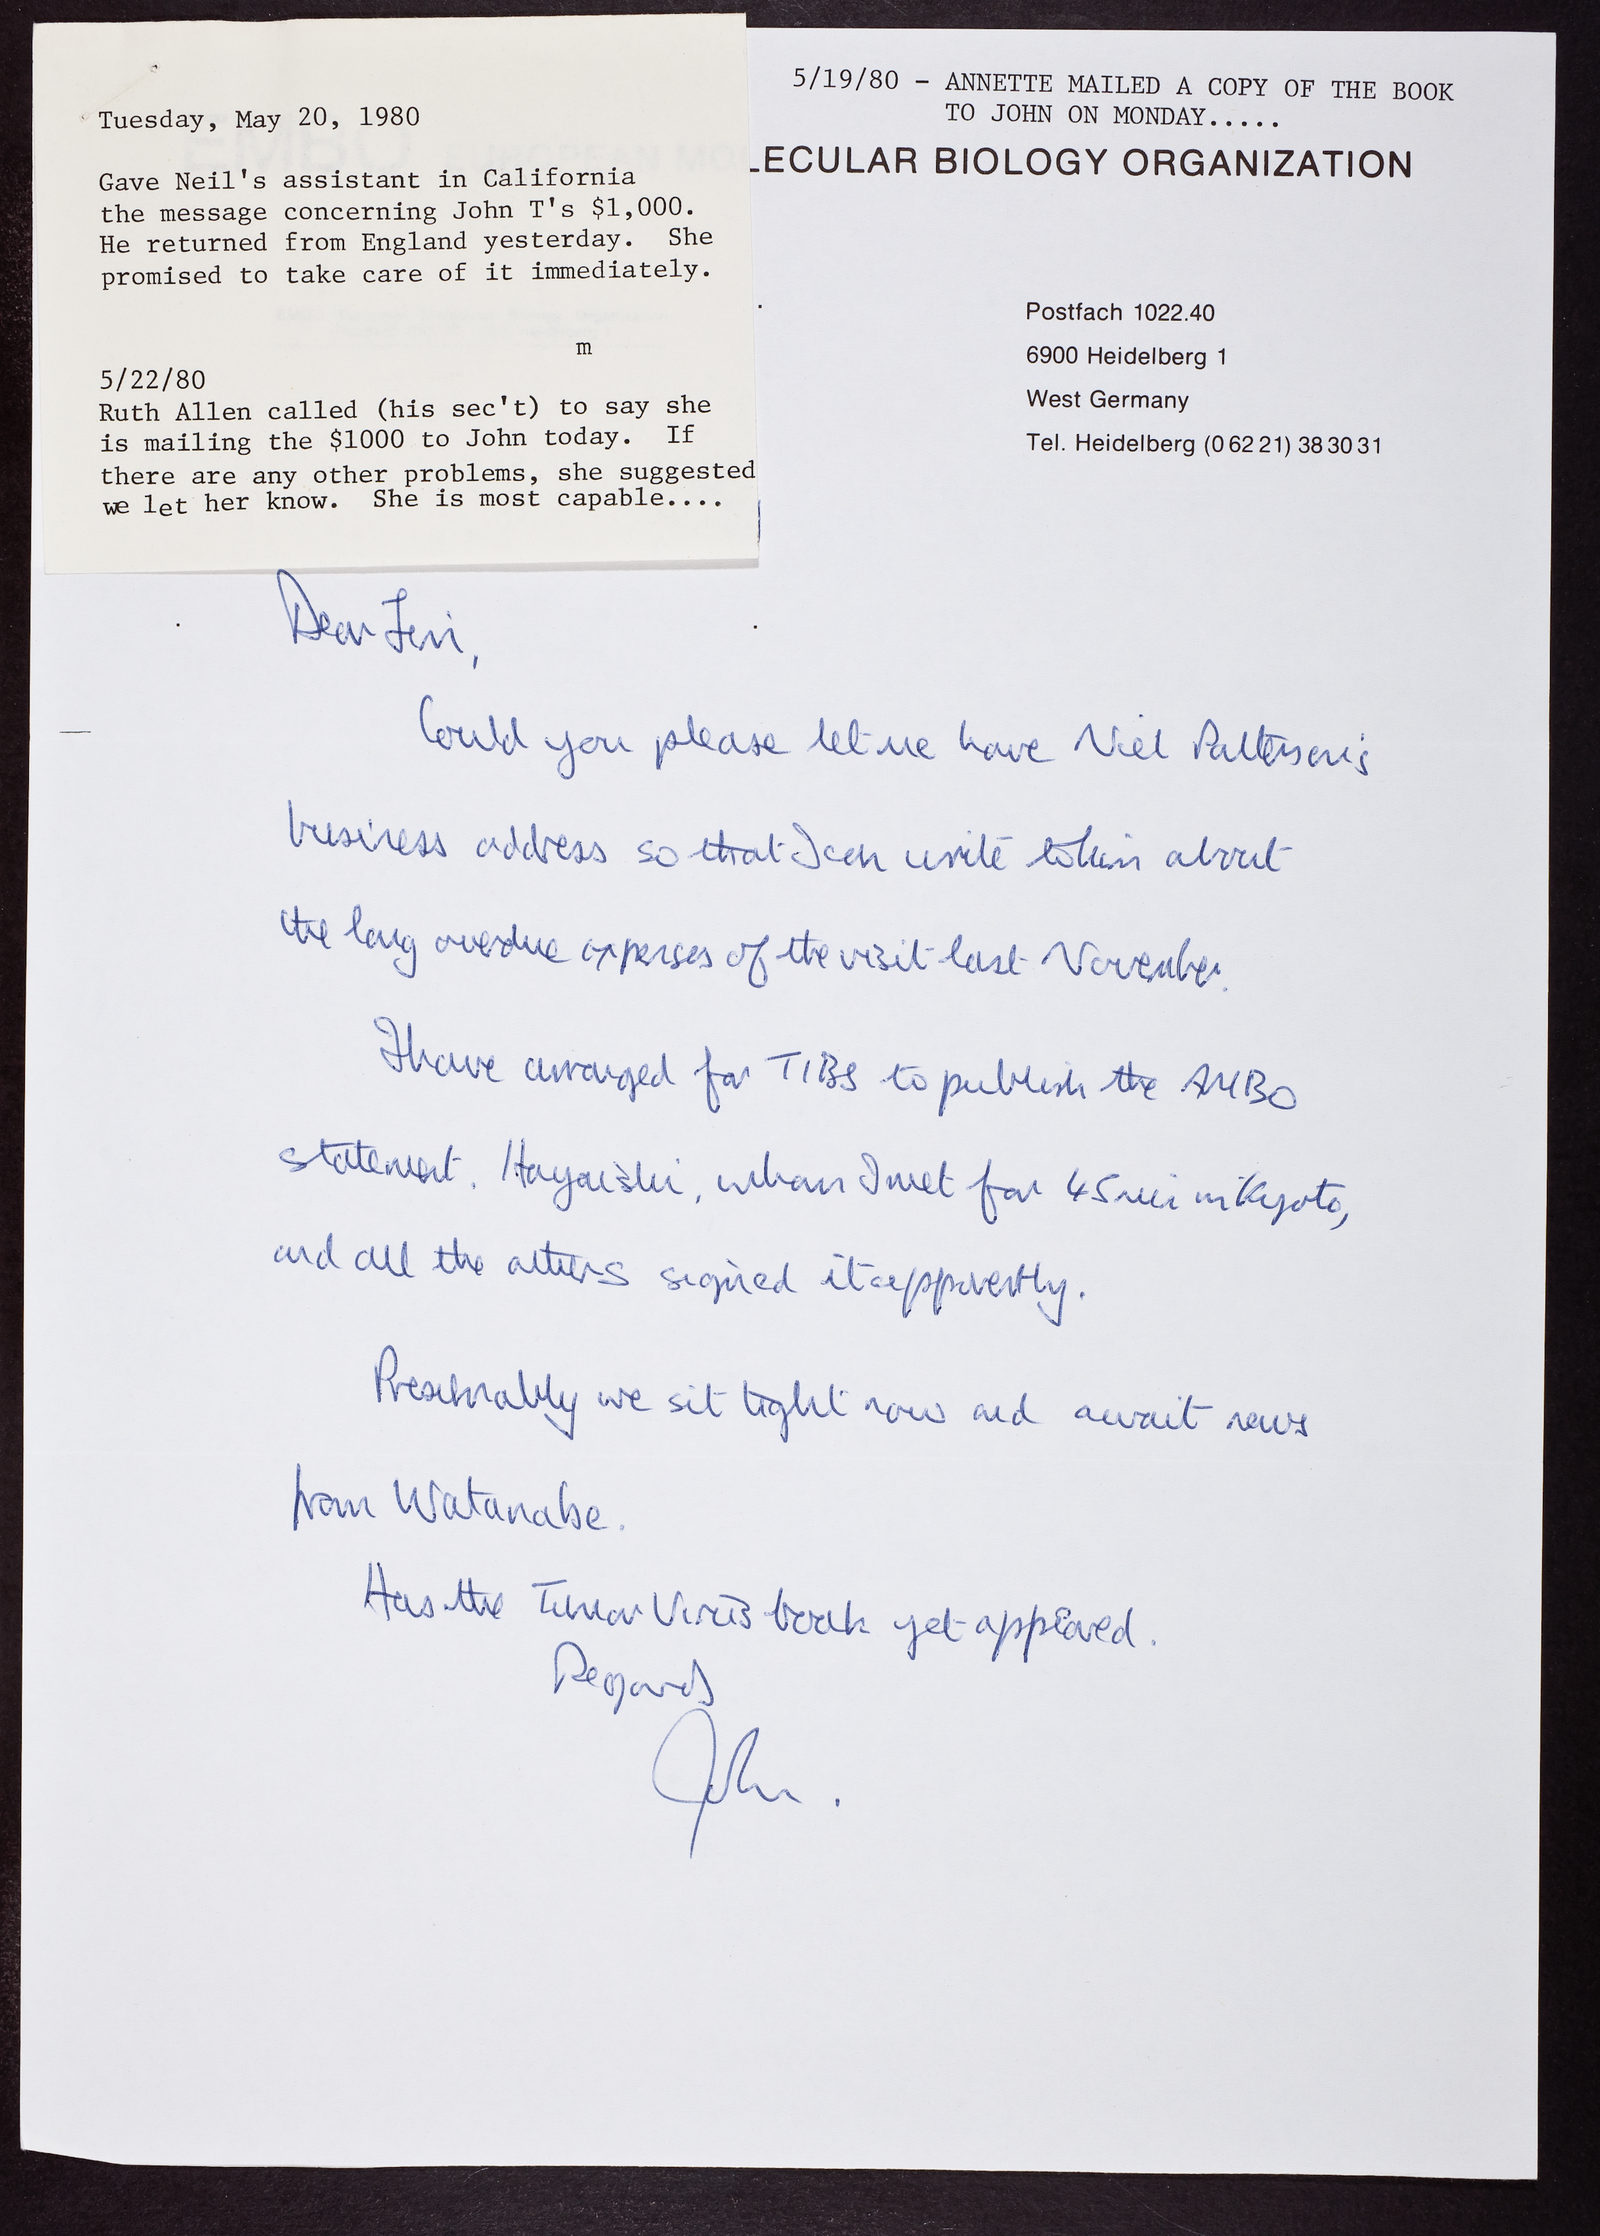 Tuesday, May 20, 1980
Gave Neil's assistant in California
the message concerning John T's $1,000.
He returned from England yesterday. She
promised to take care of it immediately.
m
5/22/80
Ruth Allen called (his sec't) to say she
is mailing the $1000 to John today. If
there are any other problems, she suggested
we let her know. She is most capable....
5/19/80 - ANNETTE MAILED A COPY OF THE BOOK
TO JOHN ON MONDAY.....
LECULAR BIOLOGY ORGANIZATION
Postfach 1022.40
6900 Heidelberg 1
West Germany
Tel. Heidelberg (0 62 21) 38 30 31
Dear
Could you please let me have Niel Patterson's
business address so that I can write to him about
the long overdue expenses of the visit last November.
I have arranged for TIBS to publish the AMBO
statement. Hayaishi, whom I met for 45 min in Kyoto,
and all the others signed it apparently.
Presumably we sit tight now and await news
from Watanabe.
Has the Tumor Virus book yet appeared.
Regards
John.